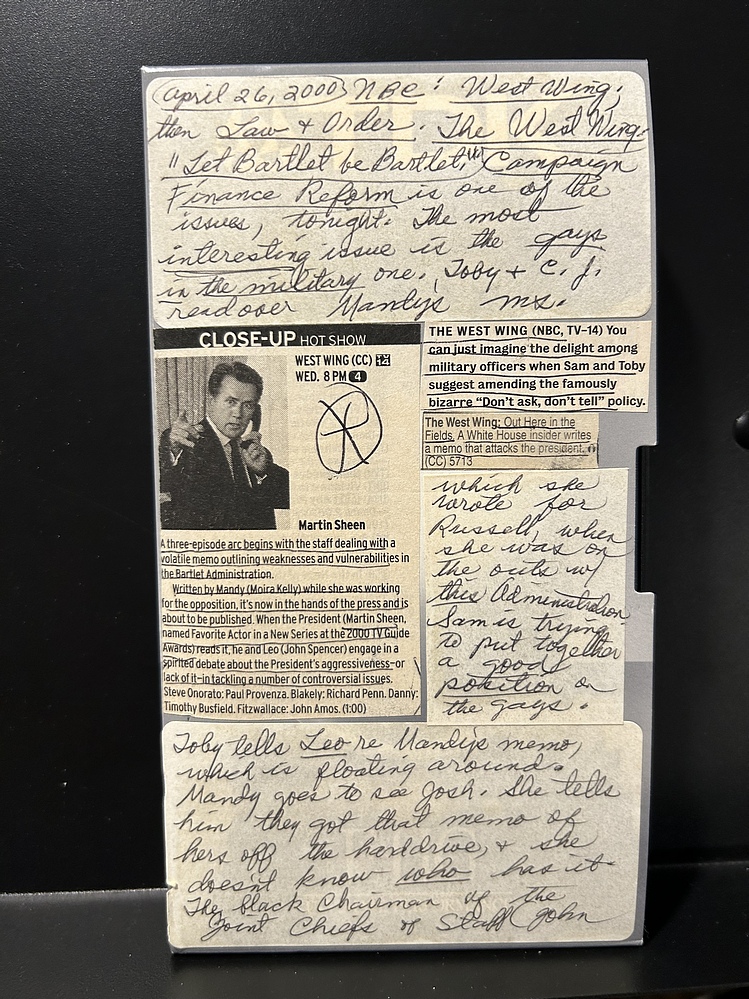 (April 26, 2000) NBC: West Wing,
then Law & Order. The West Wing.
"Let Bartlet be Bartlet." Campaign
Finance Reform is one of the
issues, tonight. The most
interesting issue is the gays
in the military one. Toby & C.J.
read over Mandy's ms.
CLOSE-UP HOT SHOW
WEST WING (CC)
WED. 8 PM 4
Martin Sheen
A three-episode arc begins with the staff dealing with a
volatile memo outlining weaknesses and vulnerabilities in
the Bartlet Administration.
Written by Mandy (Moira Kelly) while she was working
for the opposition, it's now in the hands of the press and is
about to be published. When the President (Martin Sheen,
named Favorite Actor in a New Series at the 2000 TV Guide
Awards) reads it, he and Leo (John Spencer) engage in a
spirited debate about the President's aggressiveness—or
lack of it—in tackling a number of controversial issues.
Steve Onorato: Paul Provenza. Blakely: Richard Penn. Danny:
Timothy Busfield. Fitzwallace: John Amos. (1:00)
THE WEST WING (NBC, TV-14) You
can just imagine the delight among
military officers when Sam and Toby
suggest amending the famously
bizarre "Don't ask, don't tell" policy.
The West Wing: Out Here in the
Fields. A White House insider writes
a memo that attacks the president.
(CC) 5713
which she
wrote for
Russell, when
she was on
the outs w/
this Administration
Sam is trying
to put together
a good
position on
the gays.
Toby tells Leo re Mandy's memo,
which is floating around.
Mandy goes to see Josh. She tells
him they got that memo of
hers off the harddrive, & she
doesn't know who has it
The black Chairman of the
Joint Chiefs of Staff (John